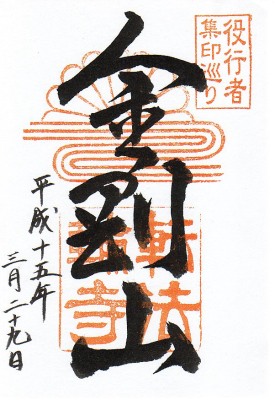 役行者
集印巡り
金剛山
転法
輪寺
平成十五年
三月二十九日